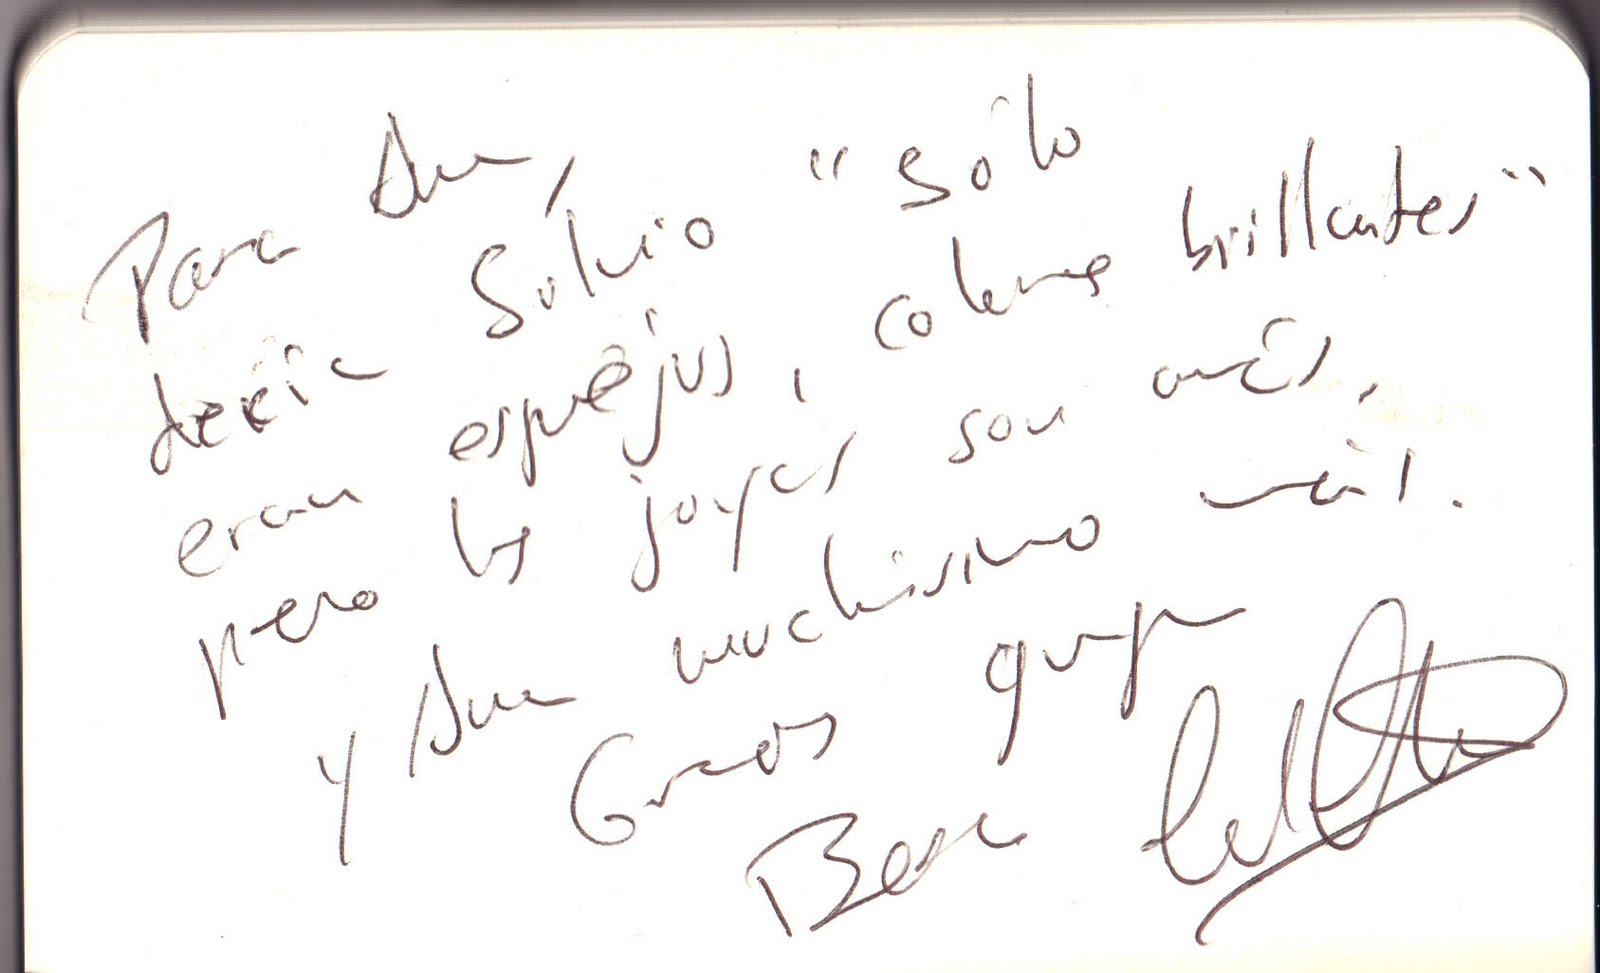 Para Ana,
decía Silvio "sólo
eran espejos, colores brillantes"
pero las joyas son más,
y Ana muchísimo más.
Gracias guapa